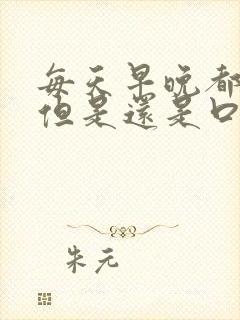 每天早晚都
但是還是口
朱元